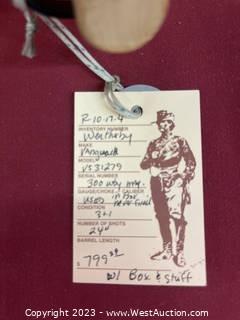 R-10-17-4
INVENTORY NUMBER
Weatherby
MAKE
Vanguard
MODEL
VS31279
SERIAL NUMBER
300 wby mag.
GAUGE/CHOKE - CALIBER
USED in Box never fired
CONDITION
3+1
NUMBER OF SHOTS
24"
BARREL LENGTH
$ 799.00
w/ Box & stuff
Copyright 2023 - www.WestAuction.com